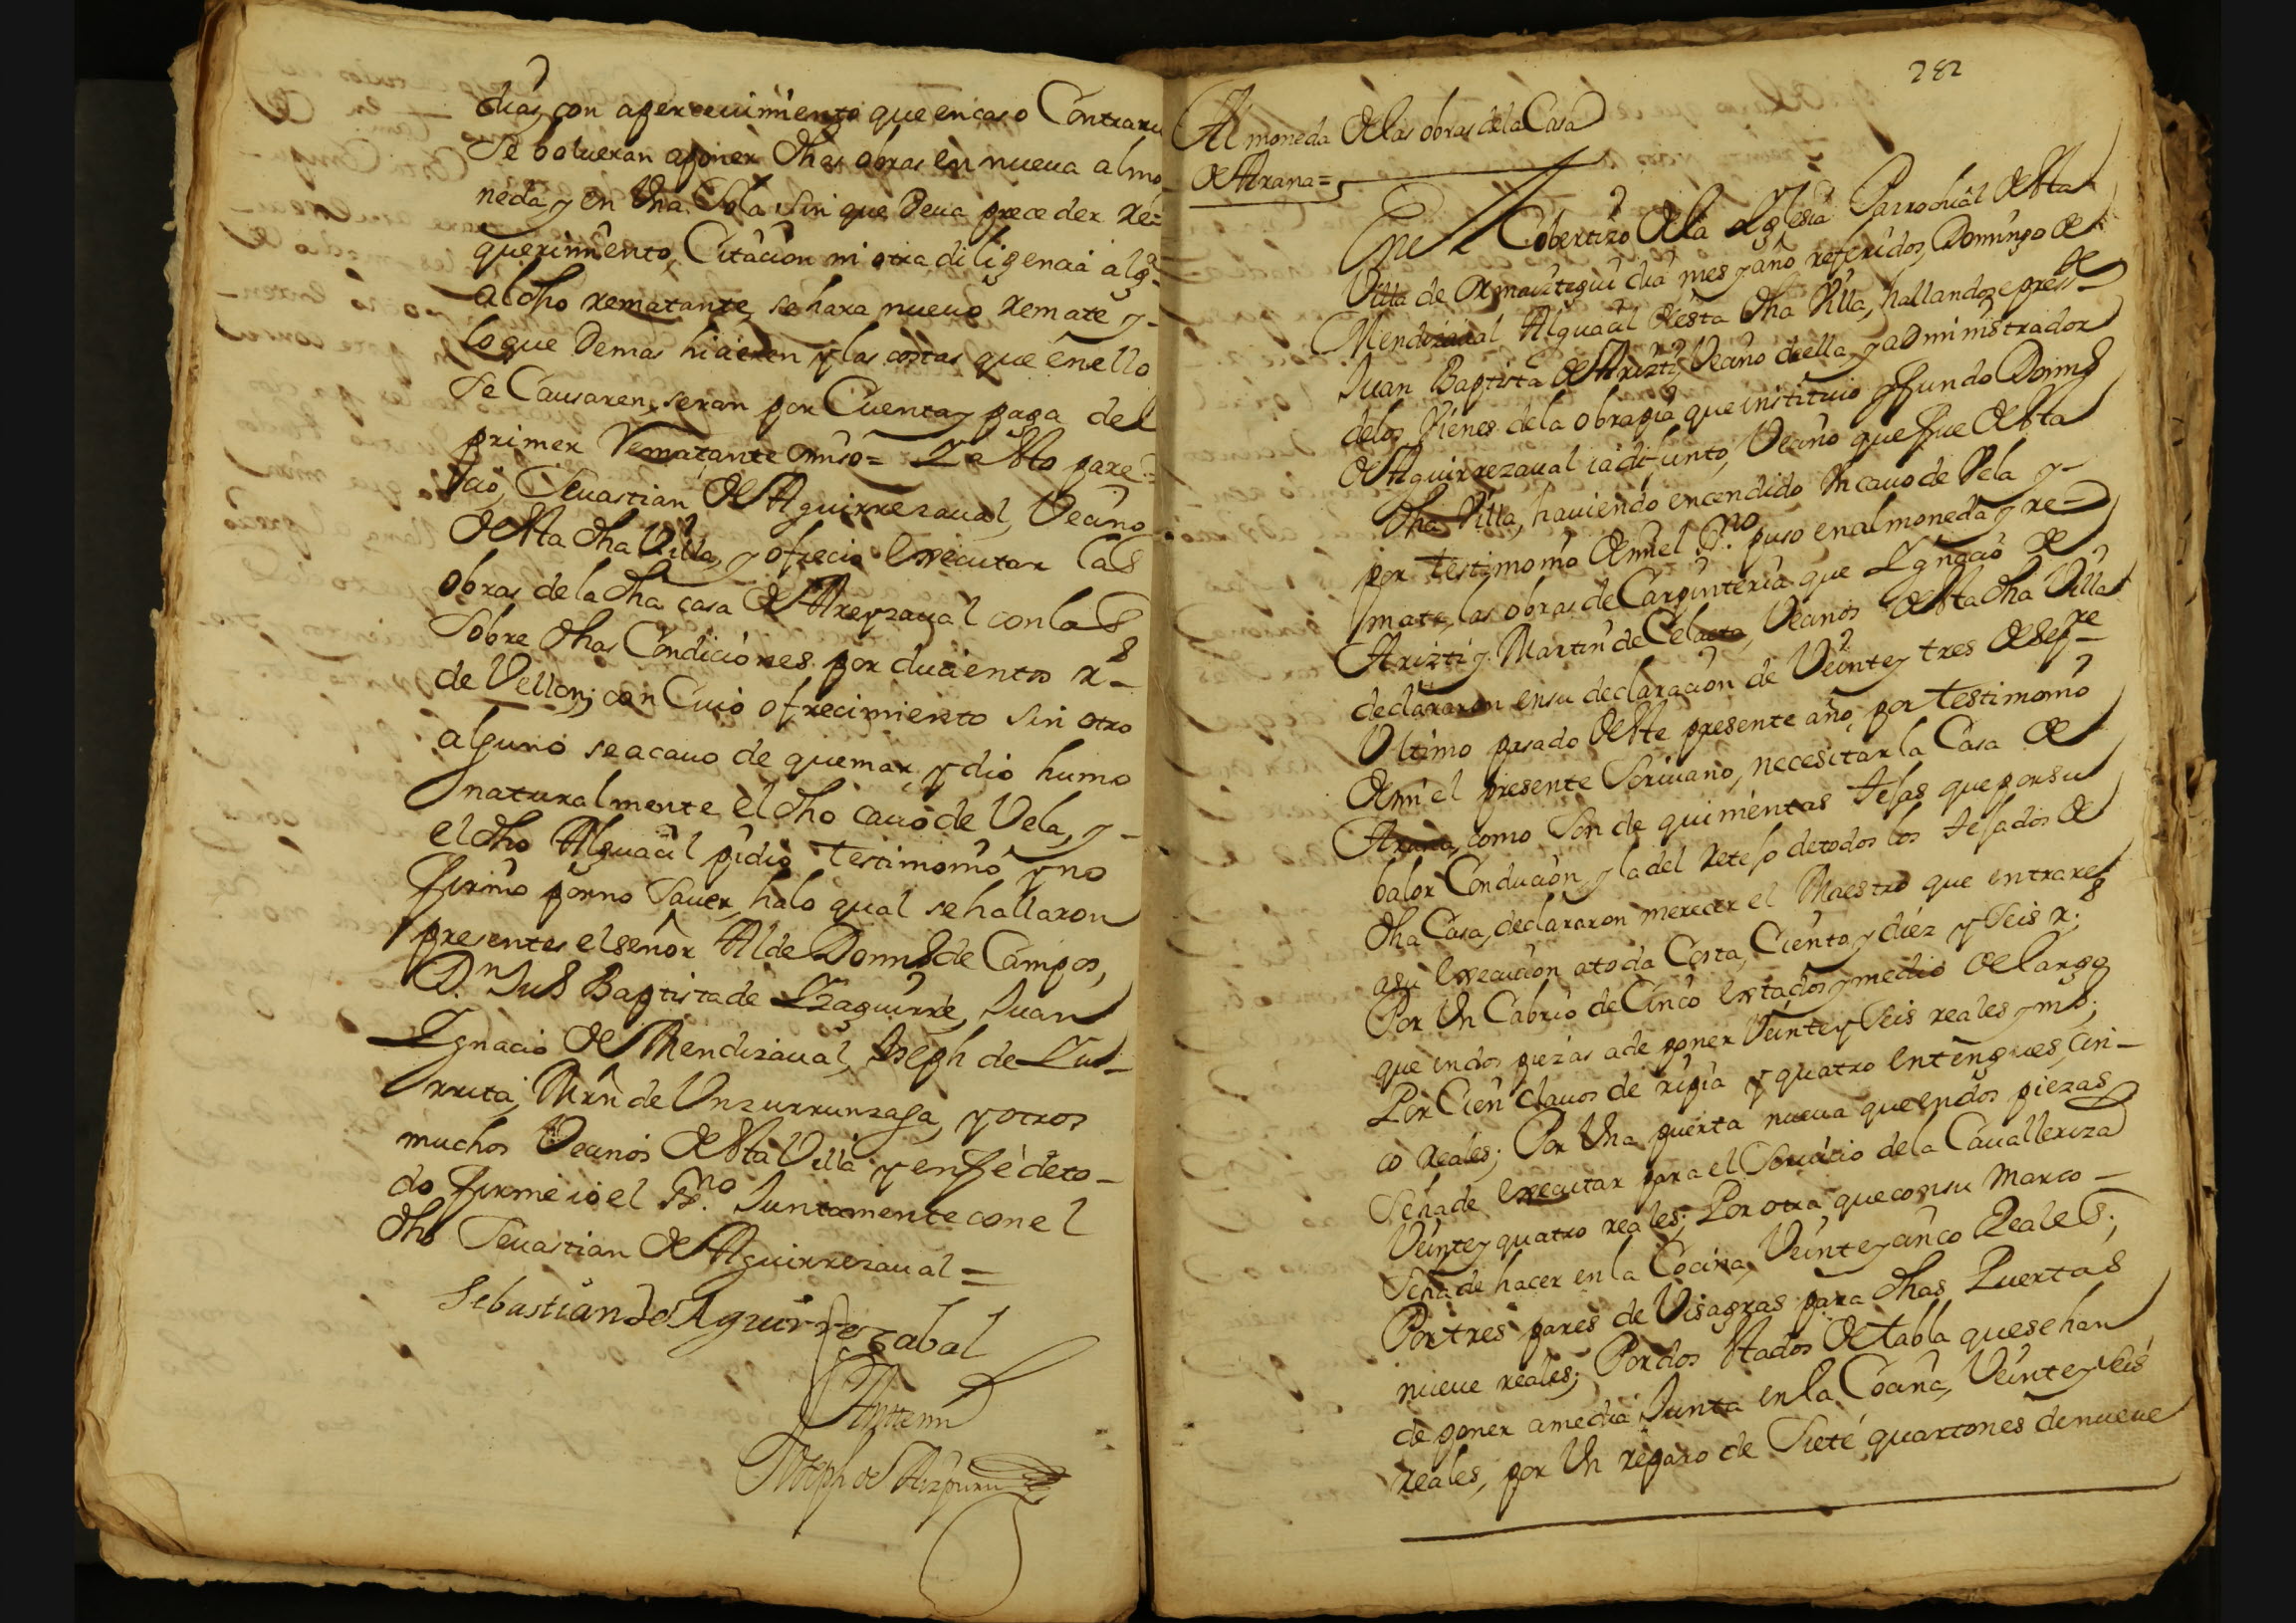 dias, con apercevimiento que en caso Contrario
Se bolveran a poner dhas obras en nueva almo
neda, y en Una Sola sin que Deva preceder Re=
querimiento, Citacion ni otra diligencia alga
al dho rematante, se hara nuevo remate y
lo que Demas hicieren y las costas que en ello
Se Causaren, seran por Cuenta y paga del
primer Rematante omiso = Y a esto pare=
cio, Sevastian de Aguirrezaval, Vecino
de esta dha Villa, y ofrecio executar las
obras de la dha casa de Areyzaval con las
Sobre dhas Condiciones por ducientos Rs
de Vellon; con Cuio ofrecimiento sin otro
alguno se acavo de quemar, y dio humo
naturalmente el dho cavo de Vela, y
el dho Alguacil pidio testimonio y no
firmo por no Saver, ha lo qual se hallaron
presentes el señor Alde Domingo de Campos,
Dn Juo Baptista de Yzaguirre, Juan
Ygnacio de Mendizaval, Joseph de Lu
rruta, Mrn de Unzurrunzaga, y otros
muchos Vecinos de esta Villa y en fé de to
do firme io el Sno Juntamente con el
dho Sevastian de Aguirrezaval =
Sebastian de Aguirrezabal
Ante mi
Joseph de Aizpuru
282
Almoneda de las obras de la Casa
de Arana =
En el Cobertizo de la Yglesia Parrochial de esta
Villa de Ormaiztegui dia mes y año referidos, Domingo de
Mendizaval Alguacil de esta dha Villa, hallandoze preste
Juan Baptista de Arizti, Vecino de ella, y administrador
de los Vienes de la obrapia que instituio y fundo Domingo
de Aguirrezaval ia difunto, Vecino que fue de esta
dha Villa, haviendo encendido Un cavo de Vela y
por testimonio de mi el Sno puso en almoneda y re=
mate, las obras de Carpinteria que Ygnacio de
Arizti y Martin de Celaeta, Vecinos de esta dha Villa
declararon en su declaracion de Veinte y tres de Sepre
Ultimo pasado de este presente año, por testimonio
de mi el presente Scrivano, necesitar la Casa de
Arana, como Son de quinientas tejas que por su
balor Conducion, y la del retejo de todos los tejados de
dha Casa, declararon merecer el Maestro que entrare
a su execucion a toda Costa, Ciento y diez y Seis rs;
Por Un Cabrio de Cinco estados y medio de largo
que en dos piezas a de poner Veinte y Seis reales y mo;
Por Cien clavos de ripia y quatro entengues, Cin
co Reales; Por Una puerta nueva que en dos piezas
Se ha de executar para el Servicio de la Cavalleriza
Veinte y quatro reales; Por otra que con su Marco
Se ha de hacer en la Cocina, Veinte y cinco Reales;
Por tres pares de Visagras para dhas Puertas
nueve reales; Por dos estados de tabla que se han
de poner a media Junta en la Cocina, Veinte y Seis
reales, por Un reparo de Siete quartones de nueve